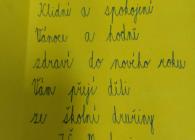 Klidné a spokojené
Vánoce a hodně
zdraví do nového roku
Vám přejí děti
ze školní družiny
ZŠ